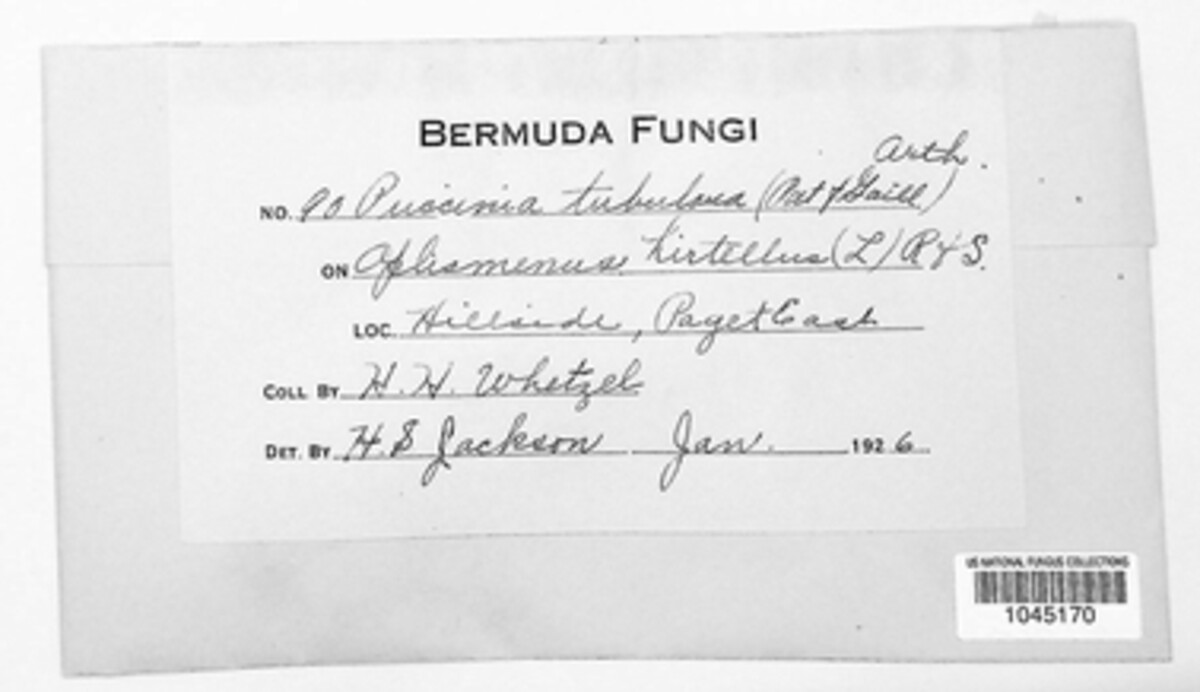 BERMUDA FUNGI
NO. 90 Puccinia tubulosa (Pat & Gaill) Arth.
ON Oplismenus hirtellus (L) R & S.
LOC. Hillside, Paget East
COLL BY H. H. Whetzel
DET. BY H S Jackson Jan. 1926
US NATIONAL FUNGUS COLLECTIONS
1045170